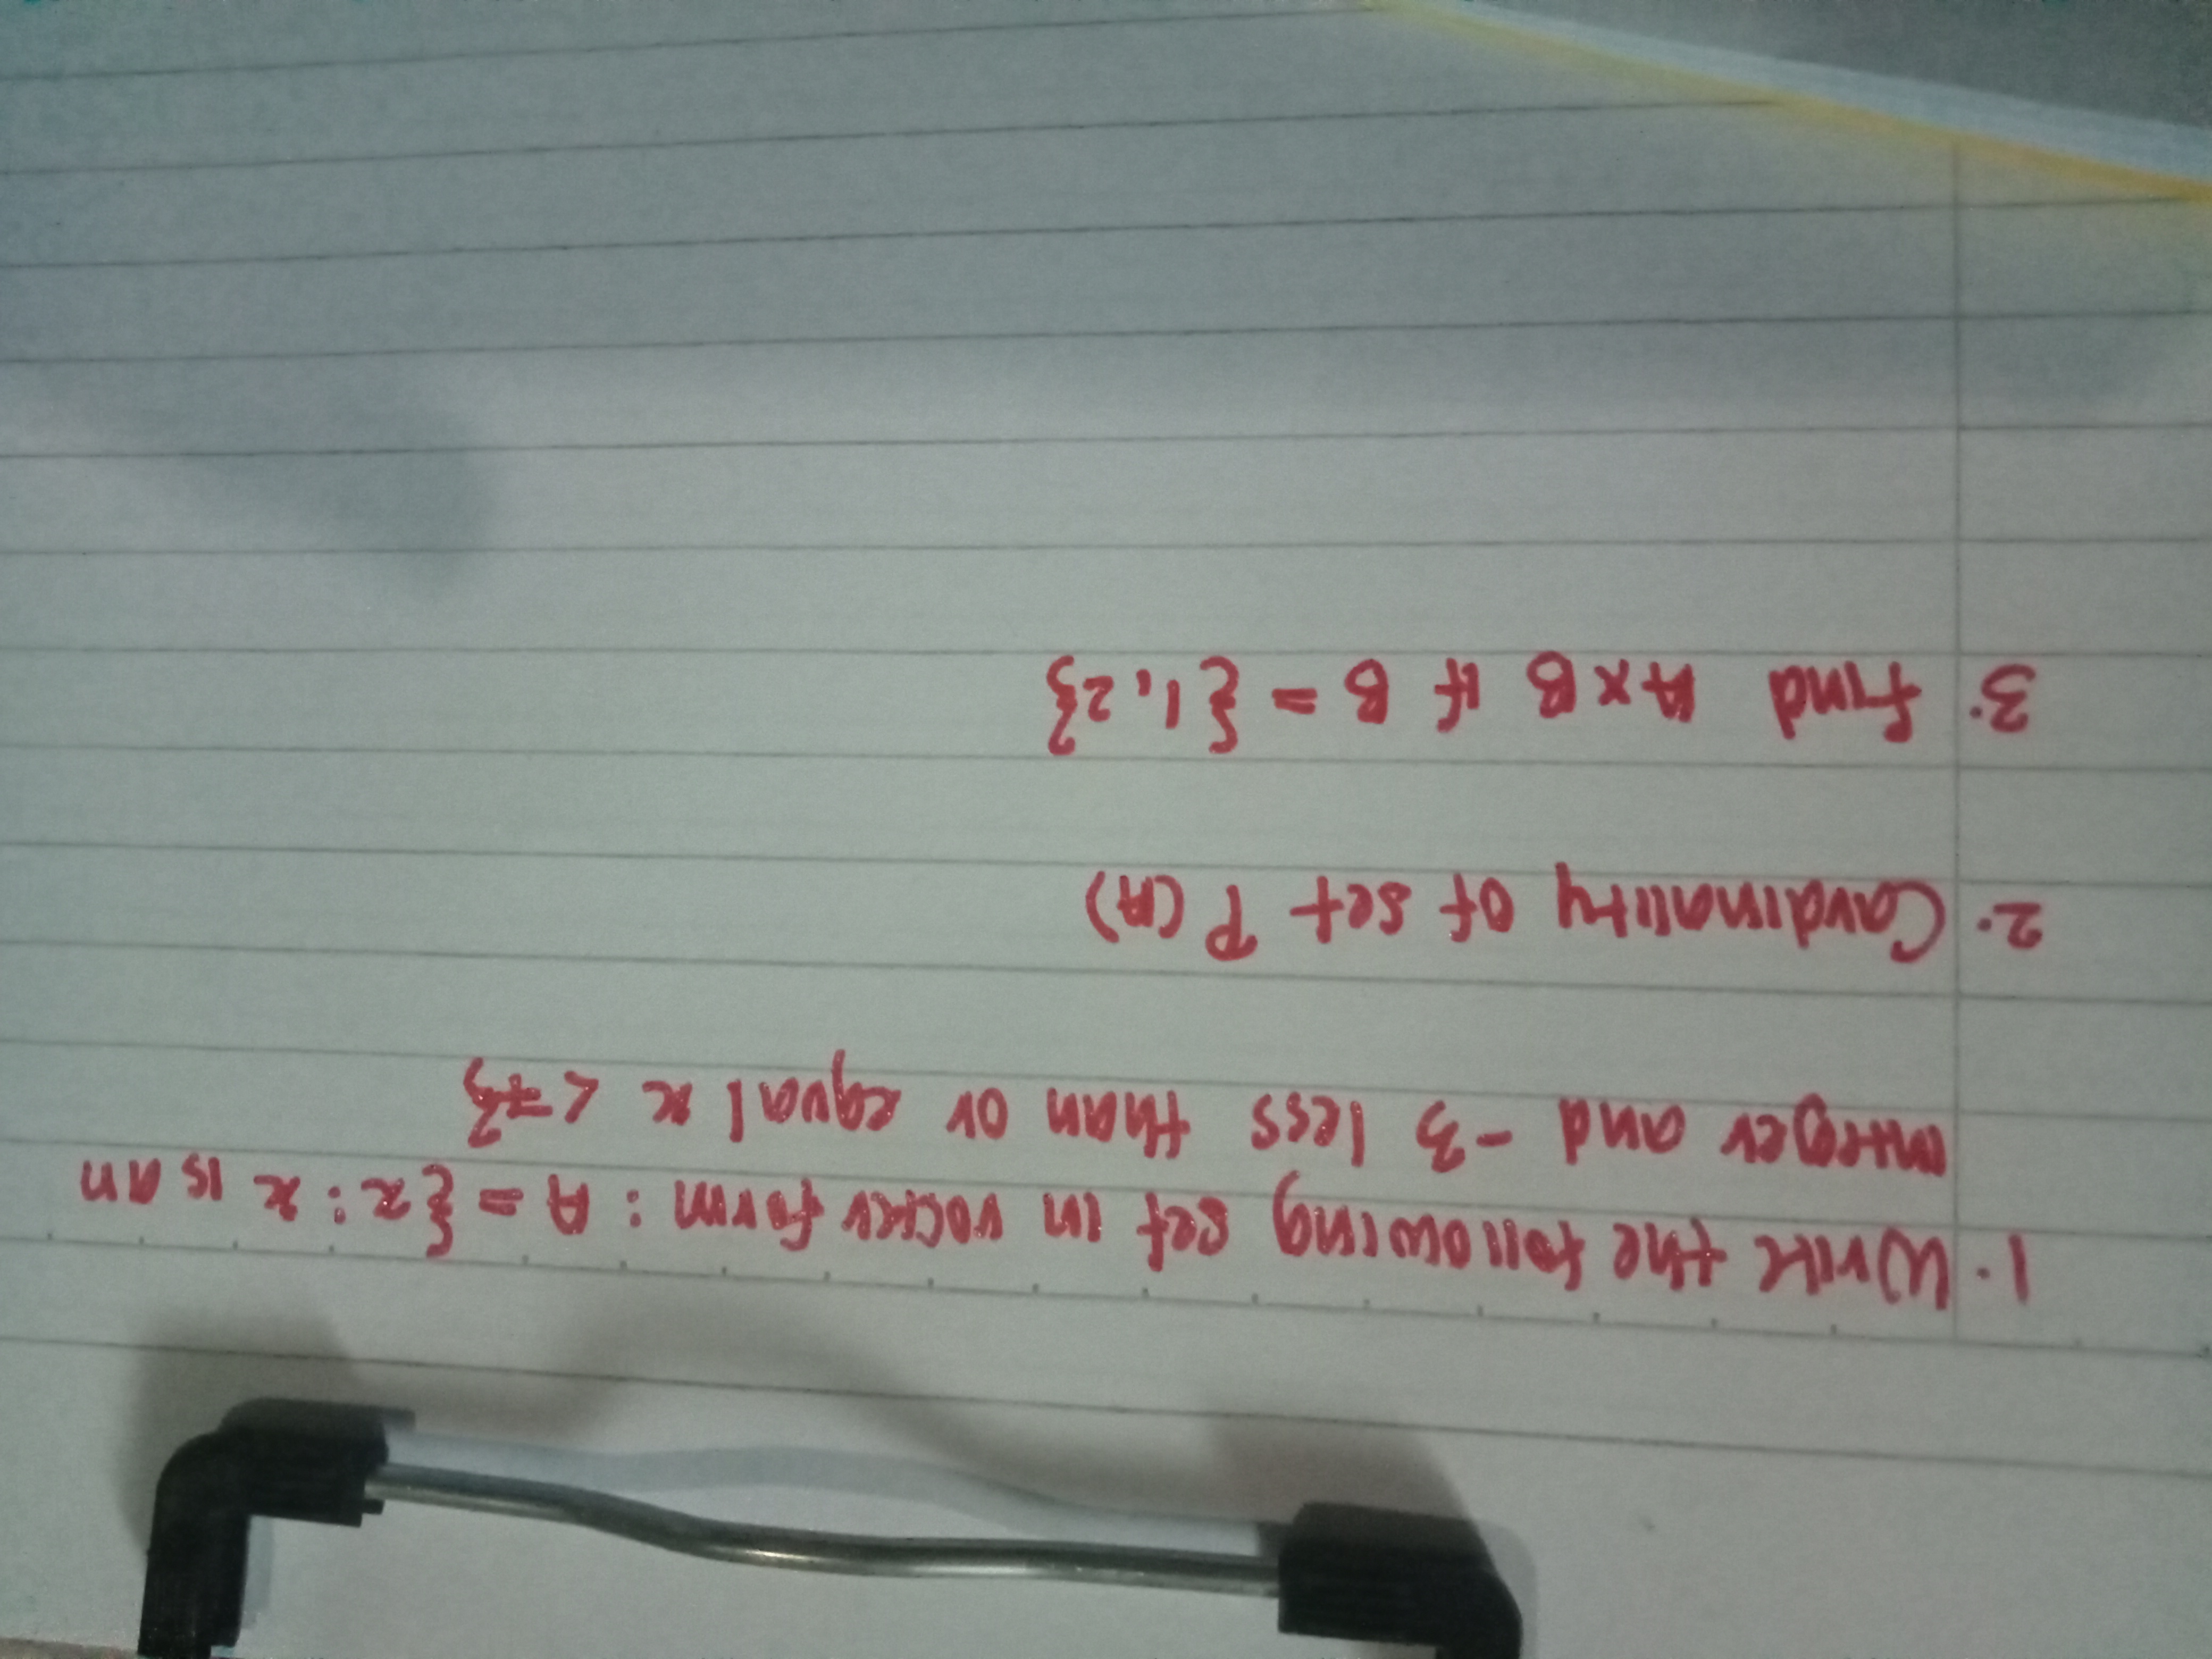 1. Write the following set in roster form : A = {x : x is an
integer and -3 less than or equal x < 7}
2. Cardinality of set P(A)
3. find A x B if B = {1, 2}